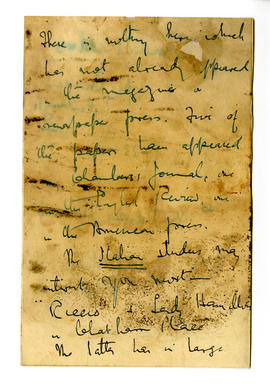 There is nothing here which
has not already appeared
in the magazine or
newspaper press. Five of
the papers have appeared
Chambers Journal, one
in the English Review, one
in the American press.
The Italian studies may
interest you most—
"Riccio" & Lady Hamilton
in Chatham Place"
The latter has in large